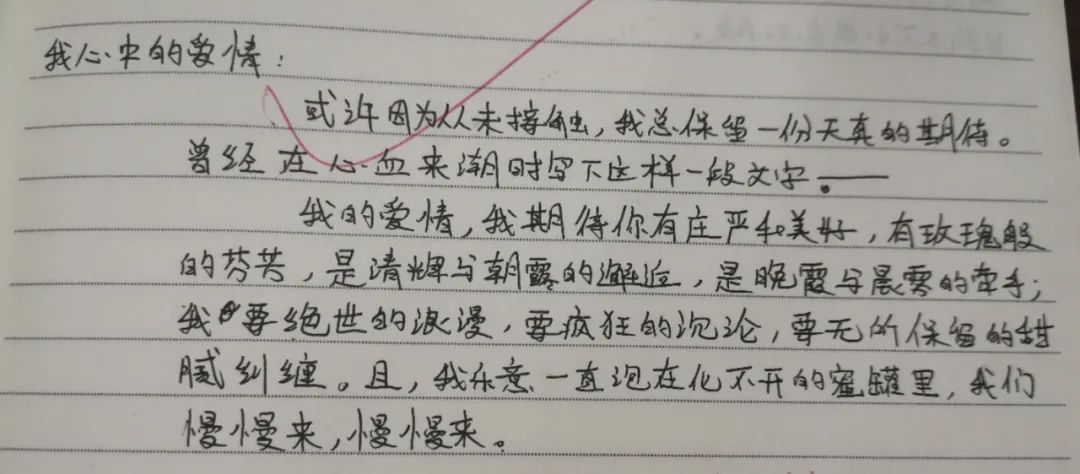 我心中的爱情：
或许因为从未接触，我总保留一份天真的期待。
曾经在心血来潮时写下这样一段文字。——
我的爱情，我期待你有庄严和美好，有玫瑰般
的芬芳，是清辉与朝露的邂逅，是晚霞与晨雾的牵手；
我要绝世的浪漫，要疯狂的沉沦，要无所保留的甜
腻纠缠。且，我乐意一直泡在化不开的蜜罐里，我们
慢慢来，慢慢来。